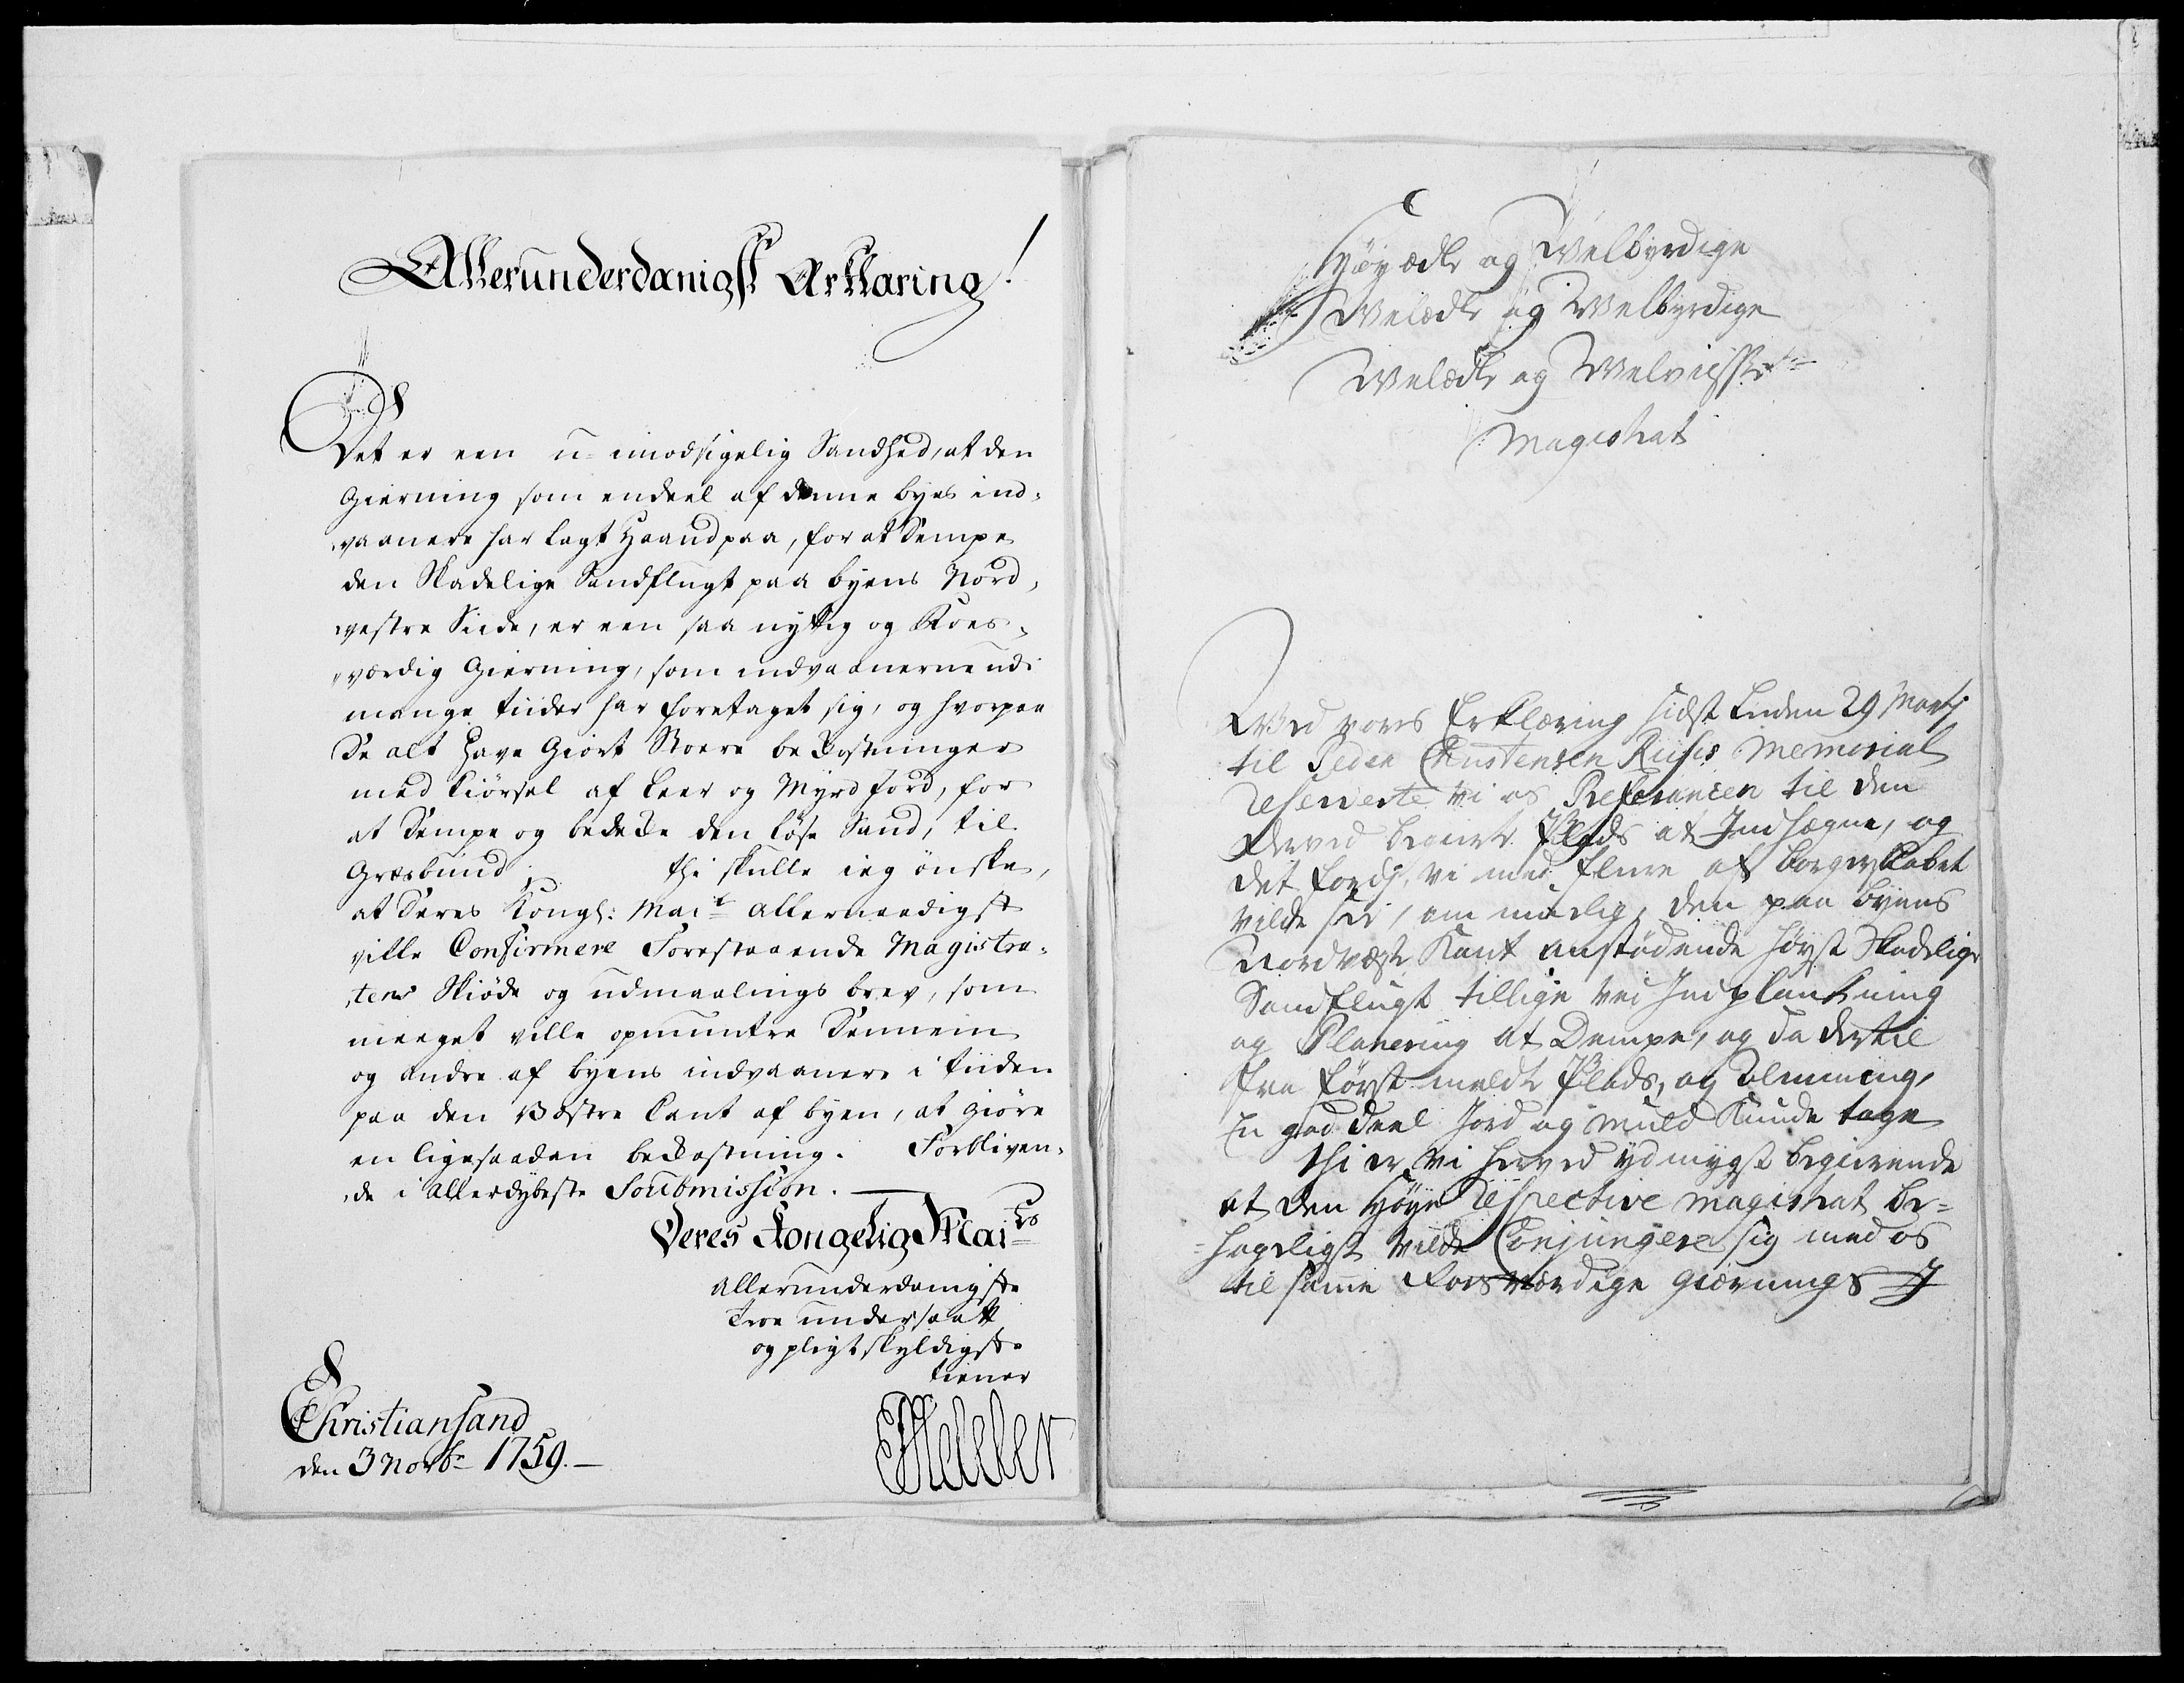 Allerunderdanigst Ærklæring!
Det er een u-imodsigelig Sandhed, at den
Gierning som endeel af denne byes ind-
vaanere har lagt Haand paa, for at dempe
den Skadelige Sandflugt paa byens Nord-
vestre Siide, er een saa nyttig og Roes-
værdig Gierning, som indvaanerne udi
mange tiider har foretaget sig, og hvorpaa
de alt have Giort Store bekostninger
med Kiörsel af Leer og Myrd jord, for
at dempe og bedekke den löse Sand, til
Græsbund. thi skulle ieg önske,
at Deres Kongl: Mait allernaadigst
ville Confirmere Forestaaende Magistra-
tens Skiöde og udmaalings brev, som
meeget ville opmuntre dennem
og andre af byens indvaanere i tiiden
paa den Westre Cant af byen, at giöre
en ligesaadan bekostning. Forbliven-
de i allerdybeste Soubmission.
Deres Kongelig Maits
allerunderdanigste
troe undersaatt
og pligtskyldigste
tiener
Christiansand
den 3 Novbr 1759.
Heller
Höyædle og Welbyrdige
Welædle og Welbyrdige
Welædle og Welviiste
Magistrat
Wed vores Erklæring sidst leeden 29 Marty
til Peder Christensen Riises Memorial
reserverte vi os Referancen til den
derved begierte Plads at Indhegne, og
det fordj, vi med flere af borgerskabet
vilde see, om muelig, den paa Byens
Nordvæste Kant anstödende höyst skadelige
Sandflugt tillige ved Indplankning
og Planering at Dempe, og da dertil
fra först meldte Plads, og Almining,
En god deel Jord og Muld Kunde tage
thi er vi herved ydmygst begierende
at den Höye respective Magistrat be-
hageligst vilde Conjungere sig med os
til samme Roesværdige Giernings